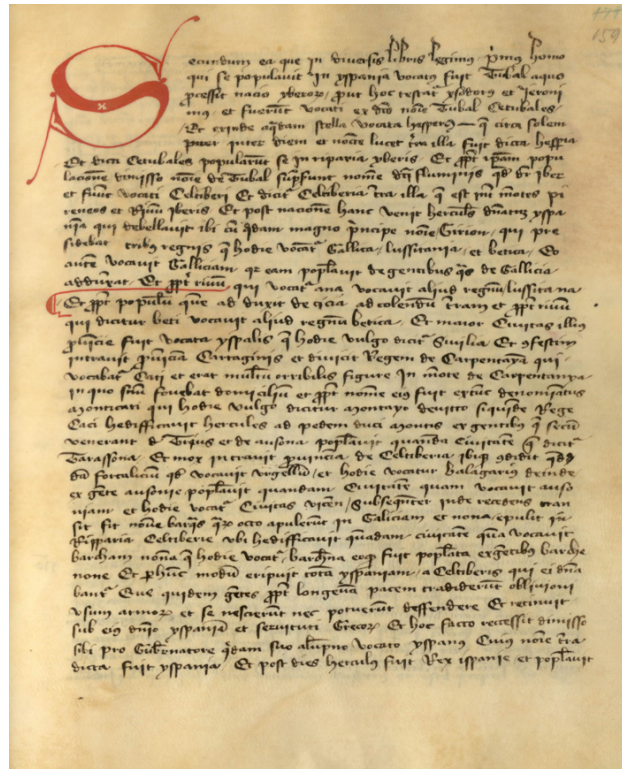 159
Secundum ea que in diversis libris legimus primus homo
qui se populavit in yspania vocatus fuit Tubal a quo
processit nacio yberorum prout hoc testatur ysidorus et Jeroni
mus et fuerunt vocati ex dicto nomine Tubal Cetubales
Et exinde quadam stella vocata hesperus que circa solem
inter diem et noctem lucet terra illa fuit dicta hesperia
Et dicti Cetubales popularunt se in riparia yberis Et propter ipsam popu
lacionem dimisso nomine de Tubal sumpserunt nomen dicti fluminis quod dicitur iber
et fuerunt vocati Celtiberi Et dicitur Celtiberia terra illa que est inter montes pi
reneos et rivum iberis Et post nacionem hanc venit hercules yspa
niam qui debellavit ibi cum quodam magno principe nomine Girion qui pre
sidebat tribus regnis que hodie vocantur Gallicia lussitania et betica Et
autem vocavit Galliciam quia eam populavit de gentibus quas de Gallicia
adduxerat Et propter rivum qui vocatur ana vocavit aliud regnum lussitana
Et propter populum quem adduxit de ad colendum terram et propter rivum
qui dicitur beti vocavit aliud regnum betica Et maior Civitas illius
provincie fuit vocata yspalis que hodie vulgo dicitur Sivilia Et confestim
intravit provinciam Cartaginis et devicit Regem de Carpentaya qui
vocabatur Caci et erat multum orribilis figure In monte de Carpentanya
in quo suum fovebat domicilium et propter nomen eius fuit extunc denominatus
monticaci qui hodie vulgo dicitur montayo devicto siquidem Rege
Caci hedifficavit hercules ad pedem dicti montis ex gentibus que secum
venerant de Tirius et de ausona populavit quandam Civitatem que dicitur
Tarassona Et mox intravit provinciam de Celtiberia ibique condidit quod
dam fortalicium quod vocavit vrgellum et hodie vocatur balagarium deinde
ex gente ausonie populavit quandam Civitatem quam vocavit auso
niam et hodie vocatur Civitas vicen Subsequenter inde recedens tran
sit nomine barques quarum octo apulerunt in Galiciam et nona apulit in
Ripparia Celtiberie ubi hedifficavit quandam civitatem quam vocavit
barcham nonam que hodie vocatur barchinona eo quod fuit populata ex gentibus barche
none Et per hunc modum eripuit totam yspaniam a Celtiberis qui ei domina
bantur Que quidem gentes propter longevam pacem tradiderunt oblivioni
usum armorum et se nescierunt nec potuerunt deffendere Et remansit
sub eius dominio yspania et servituti Grecorum Et hoc facto recessit dimisso
sibi pro Gubernatore quodam suo alumpno vocato yspanus Cuius nomine terra
dicta fuit yspania Et post dies hercules fuit Rex ispanie et populavit